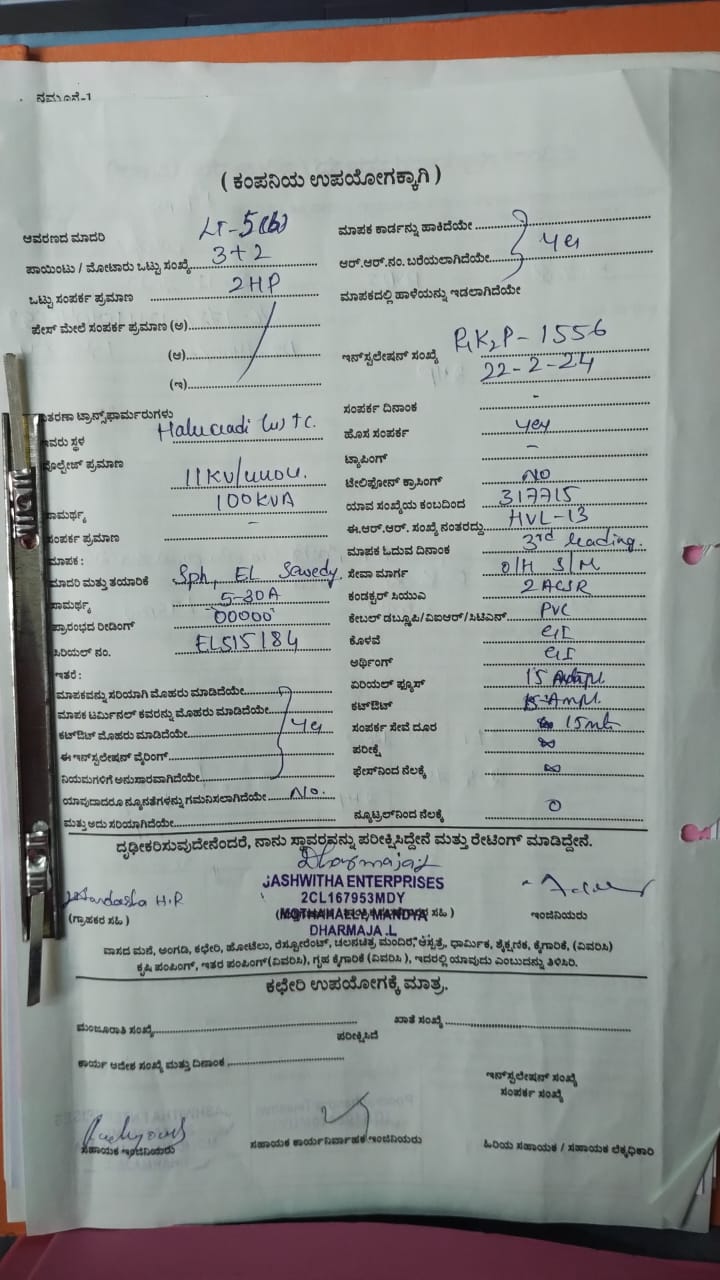 ನಮೂನೆ-1
( ಕಂಪನಿಯ ಉಪಯೋಗಕ್ಕಾಗಿ )
ಆವರಣದ ಮಾದರಿ LT-5(b)
ಪಾಯಿಂಟು / ಮೋಟಾರು ಒಟ್ಟು ಸಂಖ್ಯೆ 3+2
ಒಟ್ಟು ಸಂಪರ್ಕ ಪ್ರಮಾಣ 2HP
ಪೇಸ್ ಮೇಲೆ ಸಂಪರ್ಕ ಪ್ರಮಾಣ (ಅ)
(ಆ)
(ಇ)
ವಿತರಣಾ ಟ್ರಾನ್ಸ್‌ಫಾರ್ಮರುಗಳು
ಇವರು ಸ್ಥಳ
ವೋಲ್ಟೇಜ್ ಪ್ರಮಾಣ 11KV/440V.
ಸಾಮರ್ಥ್ಯ 100KVA
ಸಂಪರ್ಕ ಪ್ರಮಾಣ -
ಮಾಪಕ :
ಮಾದರಿ ಮತ್ತು ತಯಾರಿಕೆ Sph, EL Sewedy
ಸಾಮರ್ಥ್ಯ 5-30A
ಪ್ರಾರಂಭದ ರೀಡಿಂಗ್ 00000
ಸಿರಿಯಲ್ ನಂ. EL515184
ಇತರೆ :
ಮಾಪಕವನ್ನು ಸರಿಯಾಗಿ ಮೊಹರು ಮಾಡಿದೆಯೇ
ಮಾಪಕ ಟರ್ಮಿನಲ್ ಕವರನ್ನು ಮೊಹರು ಮಾಡಿದೆಯೇ
ಕಟ್‌ಔಟ್ ಮೊಹರು ಮಾಡಿದೆಯೇ yes
ಈ ಇನ್‌ಸ್ಟಲೇಷನ್ ವೈರಿಂಗ್
ನಿಯಮಗಳಿಗೆ ಅನುಸಾರವಾಗಿದೆಯೇ
ಯಾವುದಾದರೂ ನ್ಯೂನತೆಗಳನ್ನು ಗಮನಿಸಲಾಗಿದೆಯೇ No.
ಮತ್ತು ಅದು ಸರಿಯಾಗಿದೆಯೇ
ಮಾಪಕ ಕಾರ್ಡನ್ನು ಹಾಕಿದೆಯೇ
ಆರ್.ಆರ್.ನಂ. ಬರೆಯಲಾಗಿದೆಯೇ yes
ಮಾಪಕದಲ್ಲಿ ಹಾಳೆಯನ್ನು ಇಡಲಾಗಿದೆಯೇ
ಇನ್‌ಸ್ಟಲೇಷನ್ ಸಂಖ್ಯೆ P1K2P-1556
22-2-24
ಸಂಪರ್ಕ ದಿನಾಂಕ -
ಹೊಸ ಸಂಪರ್ಕ yes
ಟ್ಯಾಪಿಂಗ್ -
ಟೇಲಿಫೋನ್ ಕ್ರಾಸಿಂಗ್ NO
ಯಾವ ಸಂಖ್ಯೆಯ ಕಂಬದಿಂದ 317715
ಈ.ಆರ್.ಆರ್. ಸಂಖ್ಯೆ ನಂತರದ್ದು HVL-13
ಮಾಪಕ ಓದುವ ದಿನಾಂಕ 3rd Reading.
ಸೇವಾ ಮಾರ್ಗ O/H S/M
ಕಂಡಕ್ಟರ್ ಸಿಯುವಿ 2 ACSR
ಕೇಬಲ್ ಡಬ್ಲ್ಯೂಪಿ/ವಿಐಆರ್/ಸಿಟಿಎಸ್ PVC
ಕೊಳವೆ GI
ಅರ್ಥಿಂಗ್ GI
ಏರಿಯಲ್ ಫ್ಯೂಸ್ 15
ಕಟ್‌ಔಟ್ 15 Amp
ಸಂಪರ್ಕ ಸೇವೆ ದೂರ 15mt
ಪರೀಕ್ಷೆ ∞
ಫೇಸ್‌ನಿಂದ ನೆಲಕ್ಕೆ ∞
ನ್ಯೂಟ್ರಲ್‌ನಿಂದ ನೆಲಕ್ಕೆ 0
ದೃಢೀಕರಿಸುವುದೇನೆಂದರೆ, ನಾನು ಸ್ಥಾವರವನ್ನು ಪರೀಕ್ಷಿಸಿದ್ದೇನೆ ಮತ್ತು ರೇಟಿಂಗ್ ಮಾಡಿದ್ದೇನೆ.
JASHWITHA ENTERPRISES
2CL167953MDY
MOTHAHALLY, MANDYA
DHARMAJA .L
(ಗ್ರಾಹಕರ ಸಹಿ) ಸಹಿ ) ಇಂಜಿನಿಯರು
ವಾಸದ ಮನೆ, ಅಂಗಡಿ, ಕಛೇರಿ, ಹೋಟೆಲು, ರೆಸ್ಟೋರೆಂಟ್, ಚಲನಚಿತ್ರ ಮಂದಿರ, ಆಸ್ಪತ್ರೆ, ಧಾರ್ಮಿಕ, ಶೈಕ್ಷಣಿಕ, ಕೈಗಾರಿಕೆ, (ವಿವರಿಸಿ)
ಕೃಷಿ ಪಂಪಿಂಗ್, ಇತರ ಪಂಪಿಂಗ್(ವಿವರಿಸಿ), ಗೃಹ ಕೈಗಾರಿಕೆ (ವಿವರಿಸಿ ), ಇದರಲ್ಲಿ ಯಾವುದು ಎಂಬುದನ್ನು ತಿಳಿಸಿರಿ.
ಕಛೇರಿ ಉಪಯೋಗಕ್ಕೆ ಮಾತ್ರ.
ಮಂಜೂರಾತಿ ಸಂಖ್ಯೆ ಖಾತೆ ಸಂಖ್ಯೆ
ಪರೀಕ್ಷಿಸಿದೆ
ಕಾರ್ಯ ಆದೇಶ ಸಂಖ್ಯೆ ಮತ್ತು ದಿನಾಂಕ
ಇನ್‌ಸ್ಟಲೇಷನ್ ಸಂಖ್ಯೆ
ಸಂಪರ್ಕ ಸಂಖ್ಯೆ
ಸಹಾಯಕ ಇಂಜಿನಿಯರು ಸಹಾಯಕ ಕಾರ್ಯನಿರ್ವಾಹಕ ಇಂಜಿನಿಯರು ಹಿರಿಯ ಸಹಾಯಕ / ಸಹಾಯಕ ಲೆಕ್ಕಾಧಿಕಾರಿ